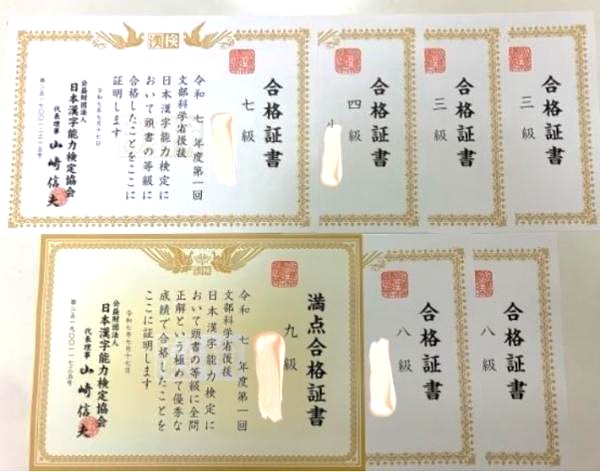 合格証書
三級
合格証書
三級
合格証書
四級
合格証書
七級
令和 七 年度第一回
文部科学省後援
日本漢字能力検定に
おいて頭書の等級に
合格したことをここに
証明します
令和七年七月十七日
公益財団法人
日本漢字能力検定協会
代表理事 山崎信夫
漢検
合格証書
八級
合格証書
八級
満点合格証書
九級
令和 七 年度第一回
文部科学省後援
日本漢字能力検定に
おいて頭書の等級に全問
正解という極めて優秀な
成績で合格したことを
ここに証明します
令和七年七月十七日
公益財団法人
日本漢字能力検定協会
代表理事 山崎信夫